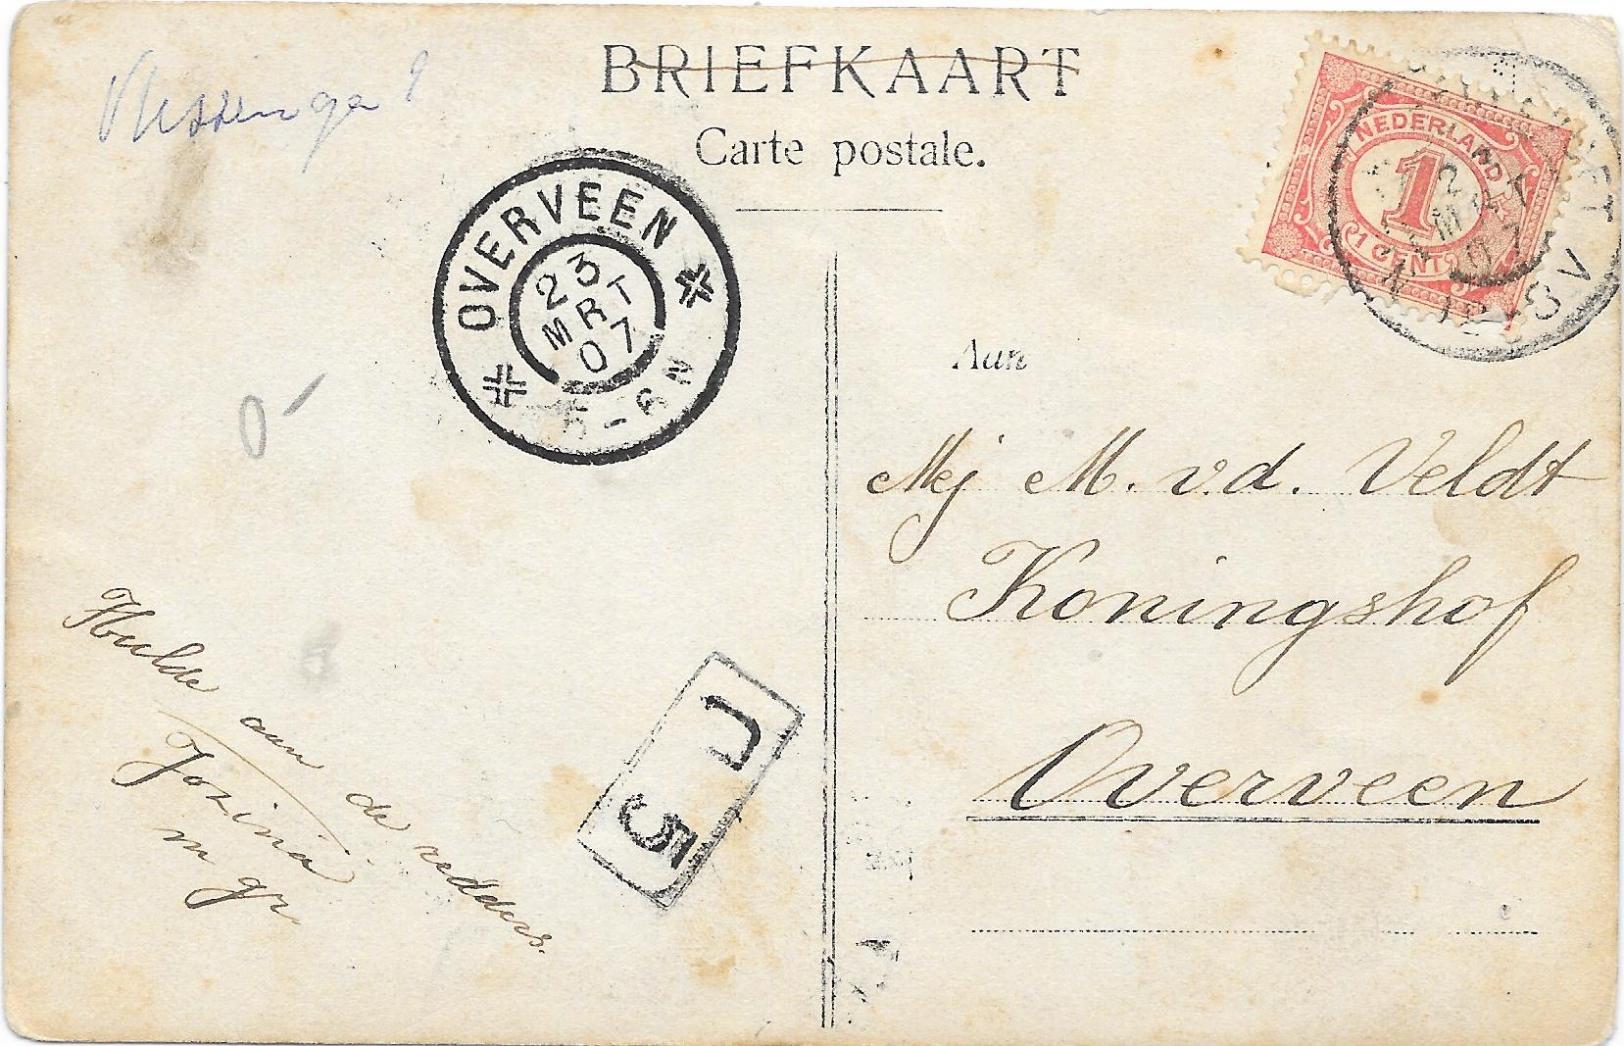 Vlissingen ?
BRIEFKAART
Carte postale.
NEDERLAND
1
1 CENT
MRT
07
OVERVEEN
23
MRT
07
5-6N
Aan
Mej M. v.d. Veldt
Koningshof
Overveen
0-
J
5
Hulde aan de redders.
Jozina
m gr.